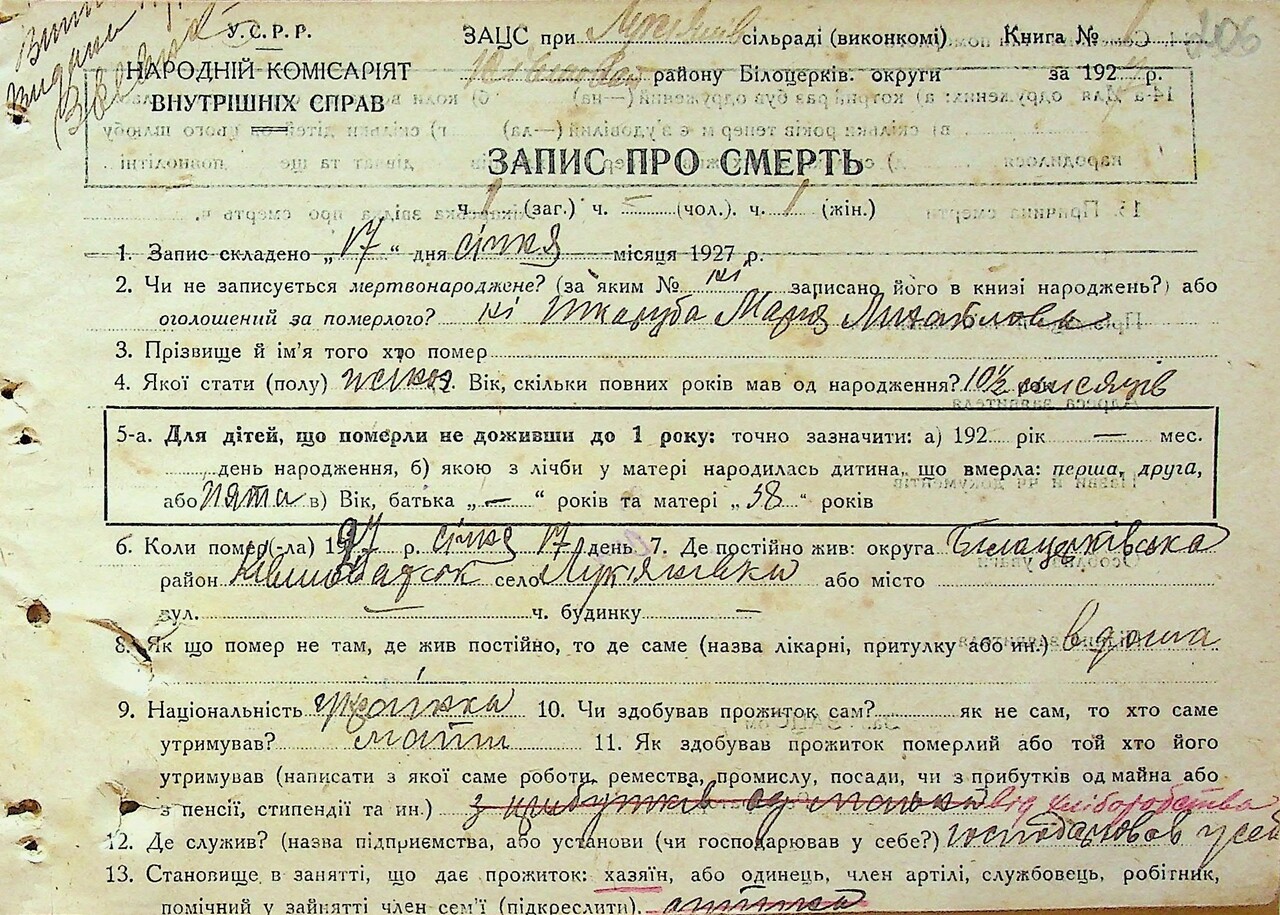 У.С.Р.Р.
ЗАЦС при сільраді (виконкомі) Книга № 1
206
НАРОДНІЙ КОМІСАРІЯТ
району Білоцерків. округи за 192 р.
ВНУТРІШНІХ СПРАВ
ЗАПИС ПРО СМЕРТЬ
ч. 1 (заг.) ч. – (чол.). ч. 1 (жін.)
1. Запис складено „17“ дня січня місяця 1927 р.
2. Чи не записується мертвонароджене? (за яким № ні записано його в книзі народжень?) або
оголошений за померлого? ні Шкаруба Марія Михайлова
3. Прізвище й ім'я того хто помер
4. Якої стати (полу) жіноч. Вік, скільки повних років мав од народження? 10½ місяців
5-а. Для дітей, що померли не доживши до 1 року: точно зазначити: а) 192 рік — мес.
день народження, б) якою з лічби у матері народилась дитина, що вмерла: перша, друга,
або пята в) Вік, батька „ — “ років та матері „38“ років
6. Коли помер(-ла) 1927 р. січня 17 день 7. Де постійно жив: округа Білацерківська
район село Лукянівка або місто
вул. — ч. будинку —
8. Як що помер не там, де жив постійно, то де саме (назва лікарні, притулку або ин.) вдома
9. Національність українка 10. Чи здобував прожиток сам? як не сам, то хто саме
утримував? мати 11. Як здобував прожиток померлий або той хто його
утримував (написати з якої саме роботи, ремества, промислу, посади, чи з прибутків од майна або
з пенсії, стипендії та ин.) з прибутків од майна від хліборобства
12. Де служив? (назва підприємства, або установи (чи господарював у себе?) господарював у себе
13. Становище в занятті, що дає прожиток: хазяїн, або одинець, член артілі, службовець, робітник,
помічний у зайнятті член сем'ї (підкреслити).